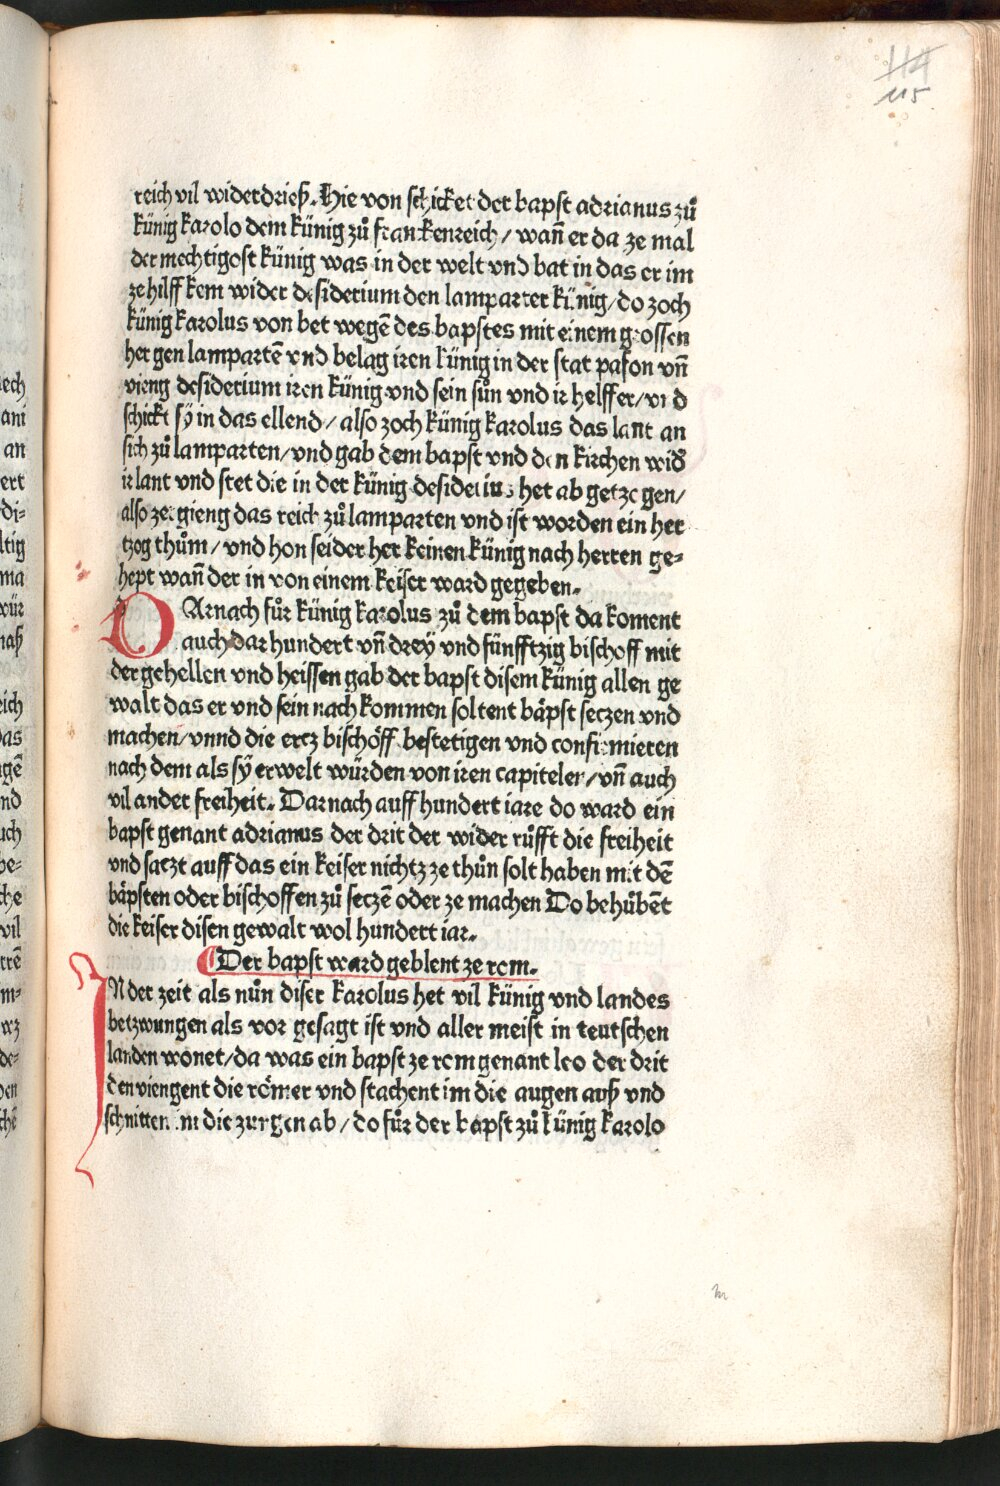 114
115
reich vil widerdrieß. Hie von schicket der bapst adrianus zů
künig karolo dem künig zů frankenreich / wañ er da ze mal
der mechtigost künig was in der welt vnd bat in das er im
ze hilff kem wider desiderium den lamparter künig / do zoch
künig karolus von bet wegē des bapstes mit einem grossen
her gen lampartē vnd belag iren künig in der stat pafon vñ
vieng desiderium iren künig vnd sein sůn vnd ir helffer / vnd
schickt sÿ in das ellend / also zoch künig karolus das lant an
sich zů lamparten / vnd gab dem bapst vnd den kirchen wid᷑
ir lant vnd stet die in der künig desiderius het ab getzogen /
also zergieng das reich zů lamparten vnd ist worden ein her
tzog thům / vnd hon seider her keinen künig nach herren ge⸗
hept wañ der in von einem keiser ward gegeben.
DArnach fůr künig karolus zů dem bapst da koment
auch dar hundert vñ dreÿ vnd fünfftzig bischoff mit
der gehellen vnd heissen gab der bapst disem künig allen ge
walt das er vnd sein nach kommen soltent bäpst seczen vnd
machen / vnnd die ercz bischöff bestetigen vnd confirmieren
nach dem als sÿ erwelt würden von iren capiteler / vñ auch
vil ander freiheit. Darnach auff hundert iare do ward ein
bapst genant adrianus der drit der wider růfft die freiheit
vnd saczt auff das ein keiser nichtz ze thůn solt haben mit dē
bäpsten oder bischoffen zů seczē oder ze machen Do behůbēt
die keiser disen gewalt wol hundert iar.
Der bapst ward geblent ze rom.
IN der zeit als nůn diser karolus het vil künig vnd landes
betzwungen als vor gesagt ist vnd aller meist in teutschen
landen wonet / da was ein bapst ze rom genant leo der drit
den viengent die römer vnd stachent im die augen auß vnd
schnitten im die zungen ab / do fůr der bapst zů künig karolo